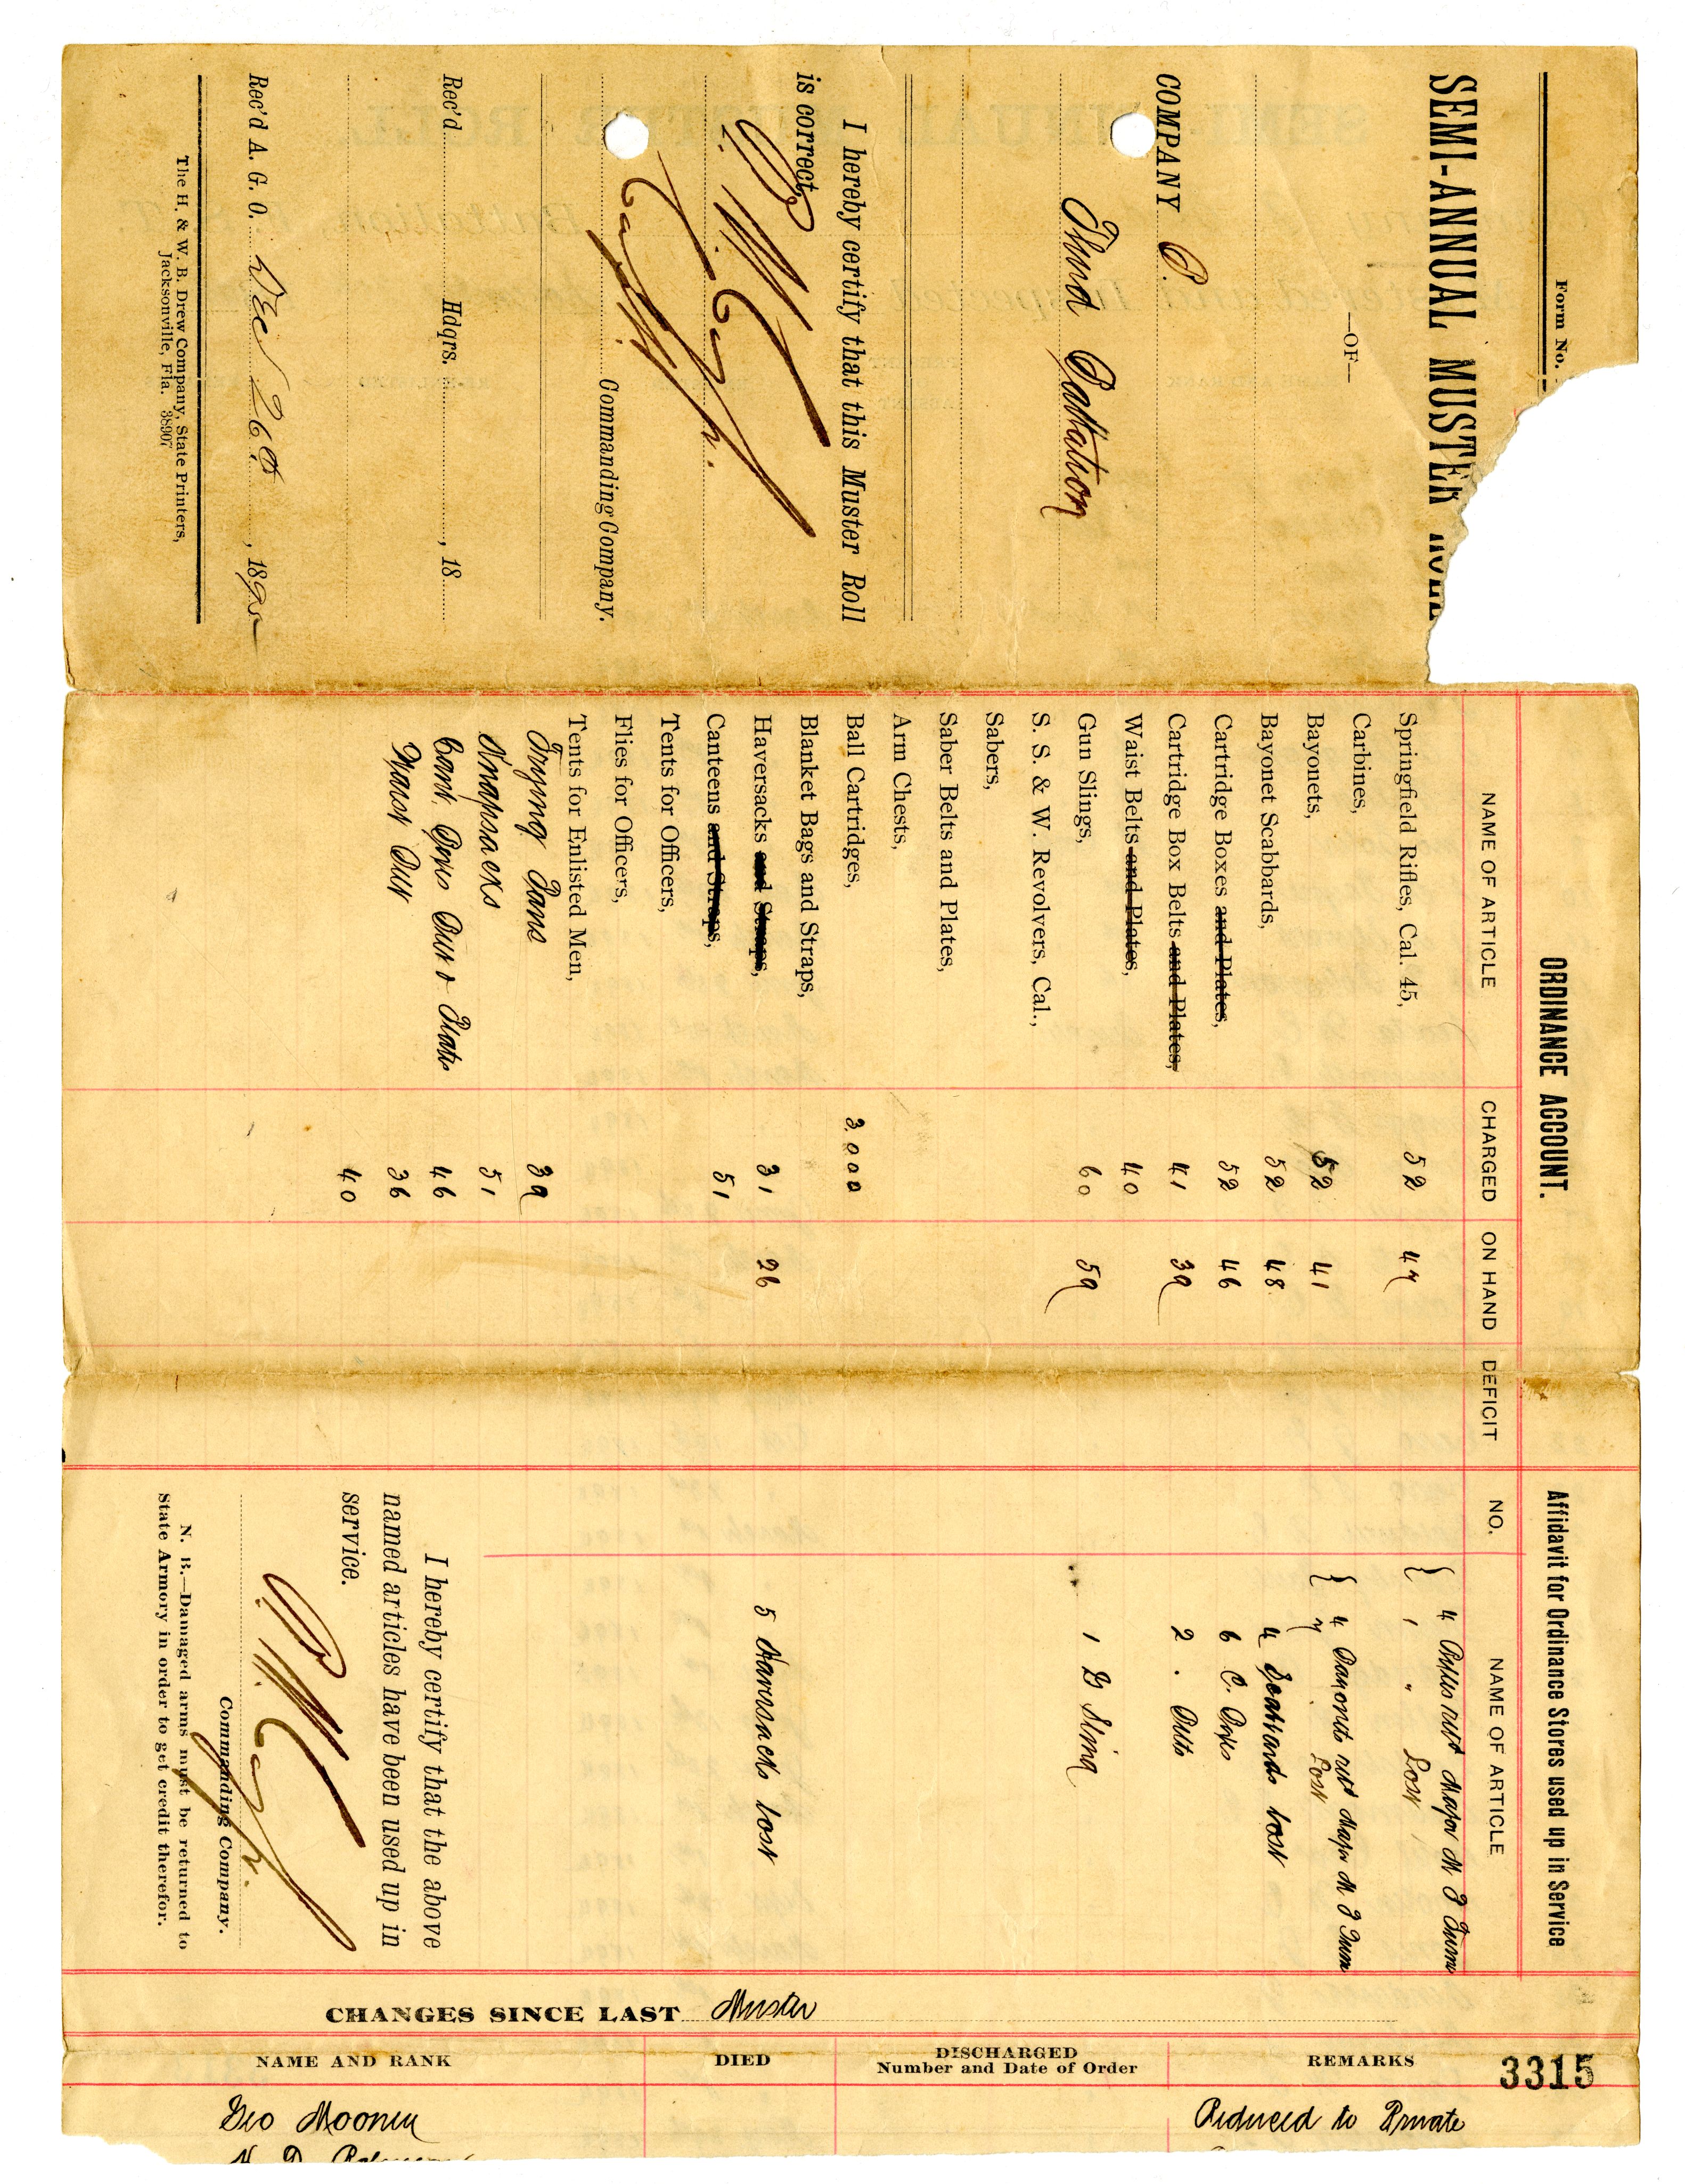 Form No.
SEMI-ANNUAL MUSTER ROLL
—OF—
COMPANY
Third Battalion
I hereby certify that this Muster Roll
is correct,
Commanding Company.
Rec'd Hdqrs. , 18
Rec'd A. G. O. Dec 26th , 1895
The H. & W. B. Drew Company, State Printers,
Jacksonville, Fla. 38907
ORDINANCE ACCOUNT.
NAME OF ARTICLE CHARGED ON HAND DEFICIT
Springfield Rifles, Cal. 45, 52 47
Carbines,
Bayonets, 52 41
Bayonet Scabbards, 52 48
Cartridge Boxes and Plates, 52 46
Cartridge Box Belts and Plates, 41 39
Waist Belts and Plates, 40
Gun Slings, 60 59
S. S. & W. Revolvers, Cal.,
Sabers,
Saber Belts and Plates,
Arm Chests,
Ball Cartridges, 3.000
Blanket Bags and Straps,
Haversacks and Straps, 31 26
Canteens and Straps, 51
Tents for Officers,
Flies for Officers,
Tents for Enlisted Men,
Frying Pans 39
Knapsacks 51
Cart. Boxs Belt & Plates 46
Waist Belt 36
40
Affidavit for Ordinance Stores used up in Service
NO. NAME OF ARTICLE
{ 4 Rifles
1 " Lost
{ 4 Bayonets
7 Lost
4 Scabbards lost
6 C. Boxes
2 . Belts
1 G Sling
5 Haversacks lost
I hereby certify that the above
named articles have been used up in
service.
Commanding Company.
N. B.—Damaged arms must be returned to
State Armory in order to get credit therefor.
CHANGES SINCE LAST Muster
NAME AND RANK DIED DISCHARGED Number and Date of Order REMARKS
3315
Geo Mooney Reduced to Private